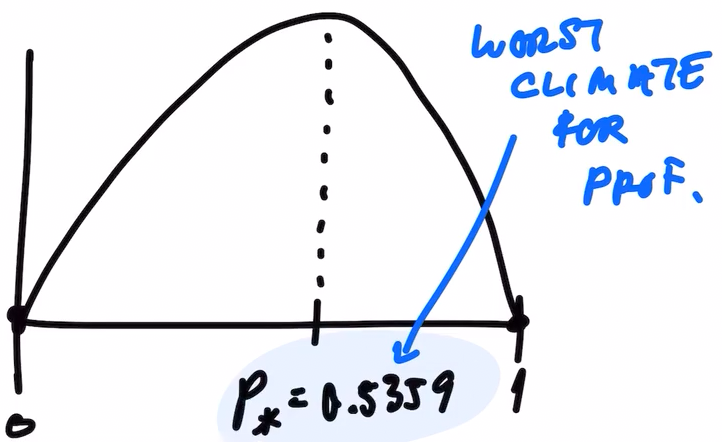 WORST
CLIMATE
FOR
PROF.
P* = 0.5359
0
1